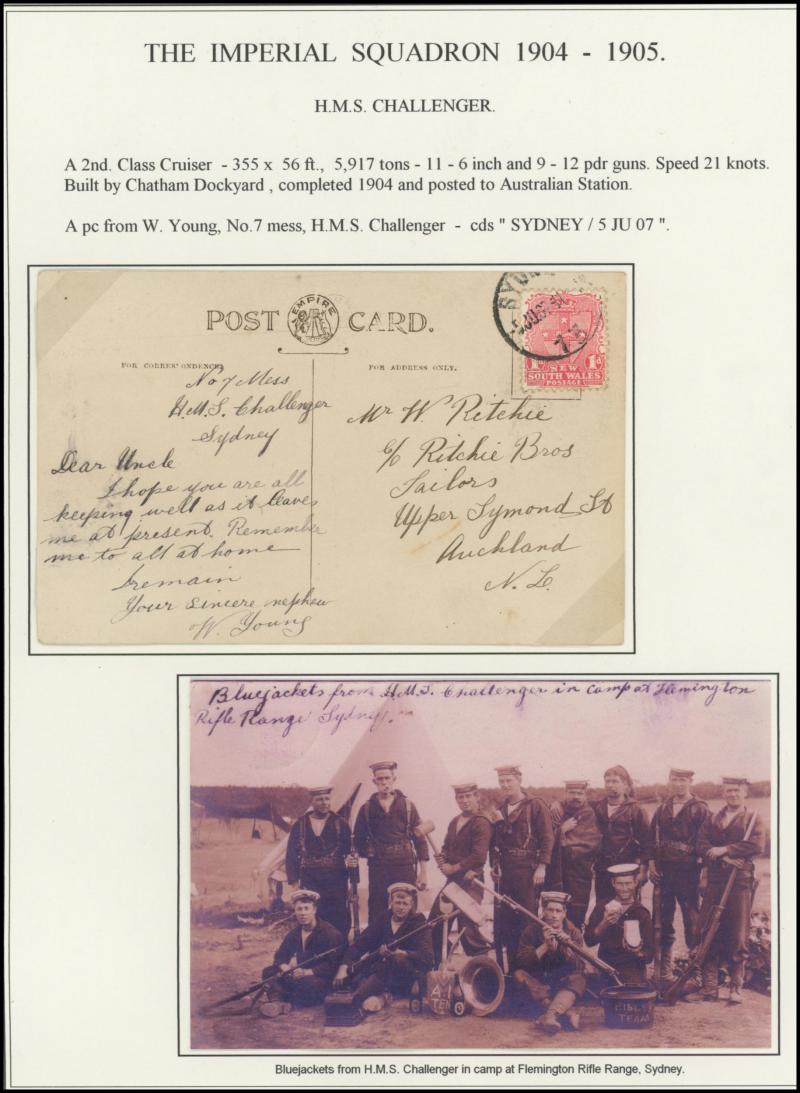 THE IMPERIAL SQUADRON 1904 - 1905.
H.M.S. CHALLENGER.
A 2nd. Class Cruiser - 355 x 56 ft., 5,917 tons - 11 - 6 inch and 9 - 12 pdr guns. Speed 21 knots.
Built by Chatham Dockyard , completed 1904 and posted to Australian Station.
A pc from W. Young, No.7 mess, H.M.S. Challenger - cds " SYDNEY / 5 JU 07 ".
POST CARD.
EMPIRE
FOR CORRESPONDENCE
FOR ADDRESS ONLY.
No 7 Mess
H.M.S. Challenger
Sydney
Dear Uncle
I hope you are all
keeping well as it leaves
me at present. Remember
me to all at home
I remain
Your sincere nephew
W. Young
1d 1d
NEW
SOUTH WALES
POSTAGE
Mr W. Ritchie
c/o Ritchie Bros
Sailors
Upper Symond St
Auckland
N. Z.
Bluejackets from H.M.S. Challenger in camp at Flemington
Rifle Range Sydney.
A 1
TEN
TEAM
Bluejackets from H.M.S. Challenger in camp at Flemington Rifle Range, Sydney.